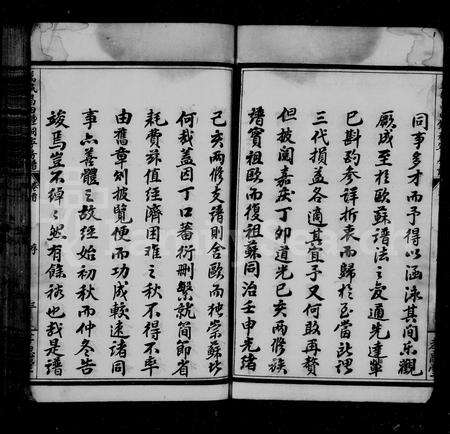 同事多才而予得以涵泳其間樂觀
厥成至於歐蘇譜法之變通先達輩
已斟酌參詳折衷而歸於至當所謂
三代損益各適其宜予又何敢再贅
但披閱嘉庆丁卯道光己亥兩修族
譜實祖歐而復祖蘇同治壬申光緒
己亥兩修支譜則舍歐而独崇蘇此
何哉蓋因丁口蕃衍刪繁就简節省
耗費殊值經濟困难之秋不得不率
由舊章刻披覽便而功成較速諸同
事亦善體之故經始初秋而仲冬告
竣焉豈不绰绰然有餘裕也哉是譜